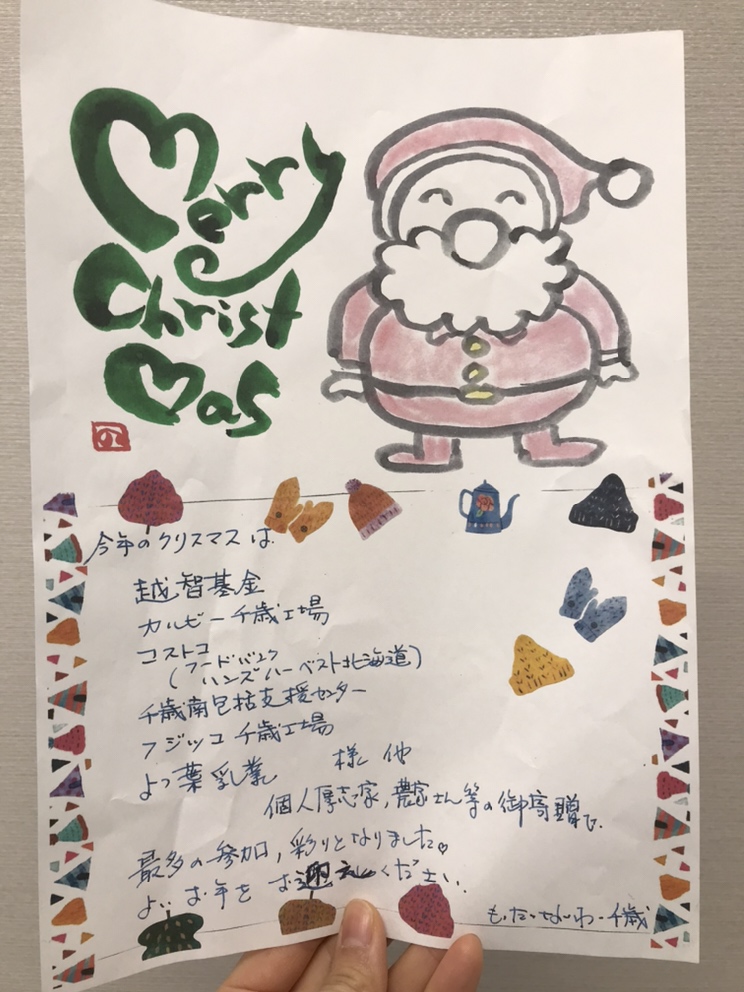 Merry
Christ
mas
今年のクリスマスは
越智基金
カルビー千歳工場
コストコ
(フードバンク
ハンズハーベスト北海道)
千歳南包括支援センター
フジッコ千歳工場
よつ葉乳業 様 他
個人厚志家,農家さん等の御寄贈で.
最多の参加,彩りとなりました♡
よいお年をお迎えください.
もったいないわ・千歳